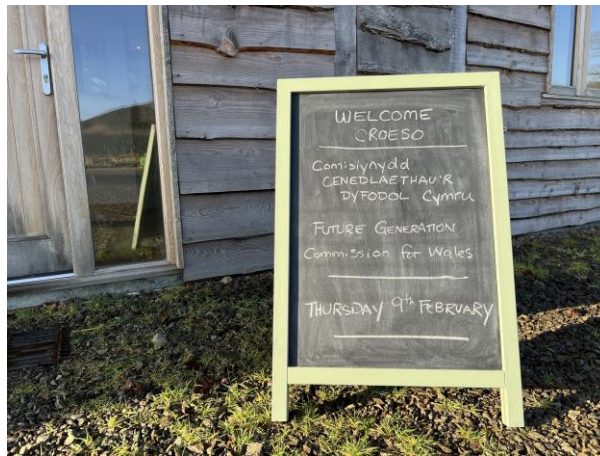 WELCOME
CROESO
Comisiynydd
CENEDLAETHAU'R
DYFODOL Cymru
FUTURE GENERATION
Commission for Wales
THURSDAY 9th FEBRUARY